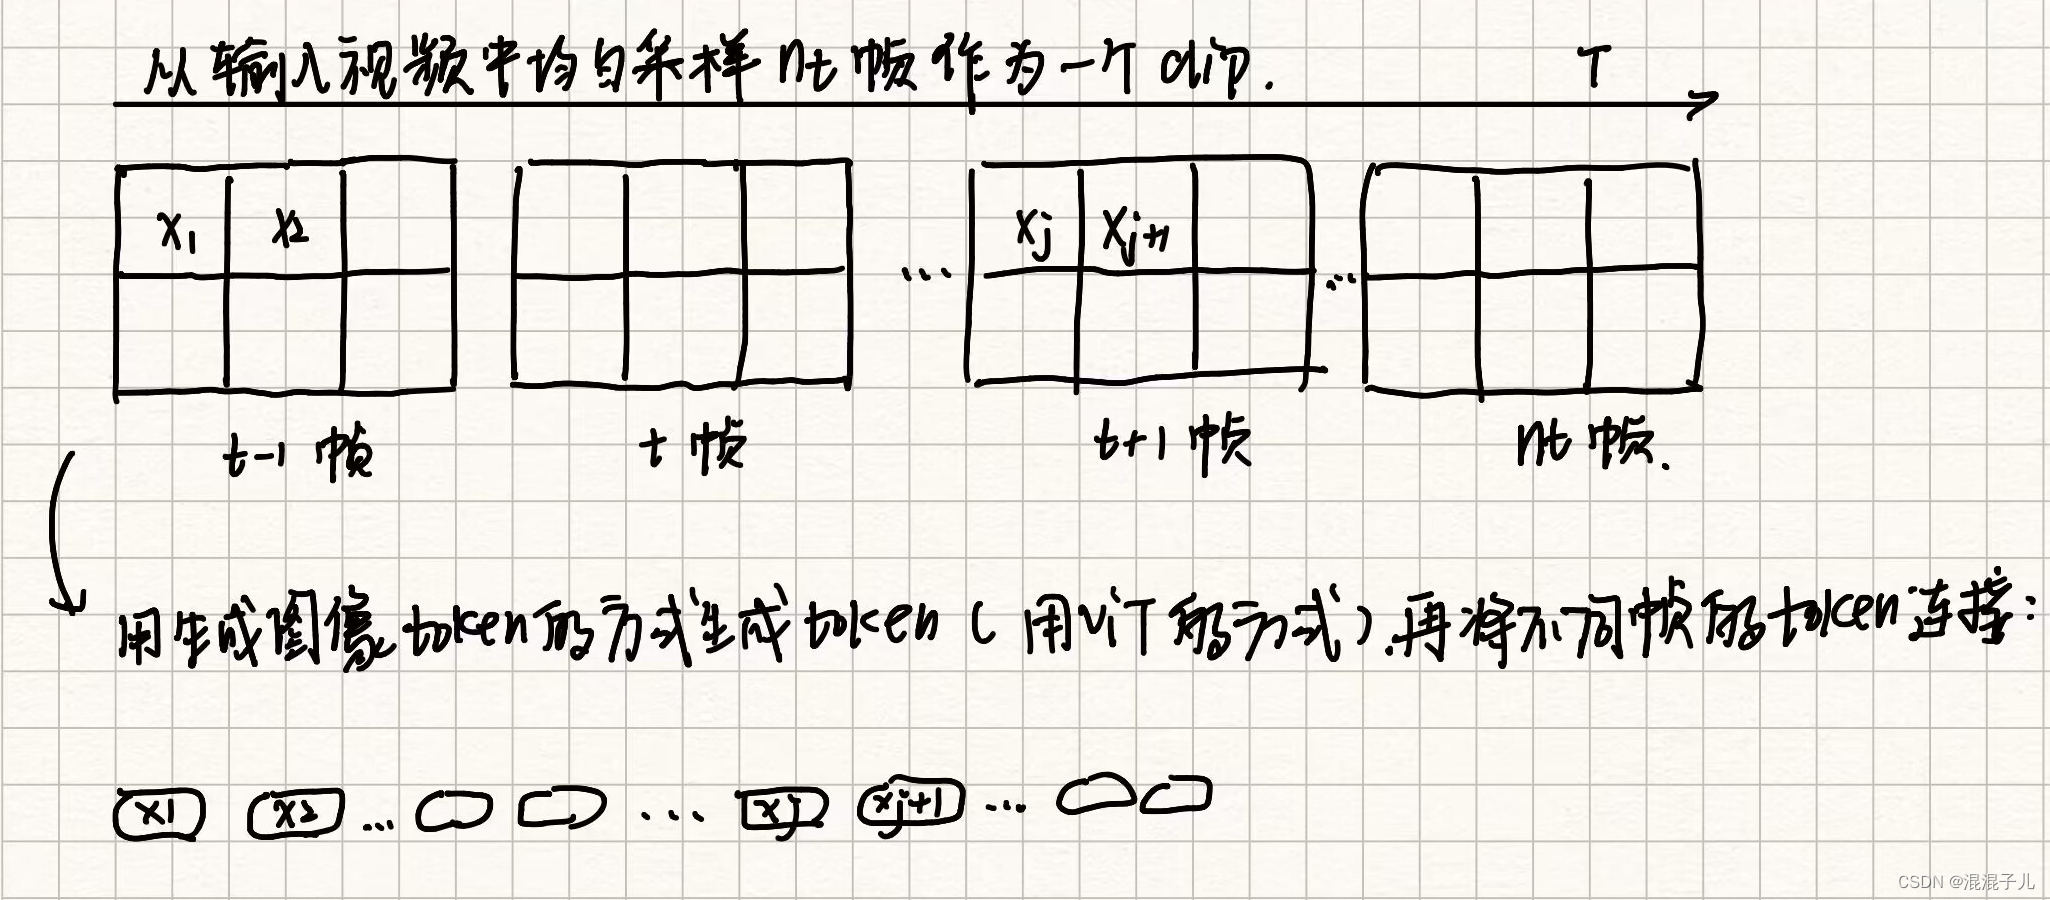 从输入视频中均匀采样 nt 帧作为一个 clip. T
x1 x2 xj xj+1
... ...
t-1 帧 t 帧 t+1 帧 nt 帧.
用生成图像token的方式生成token(用ViT的方式).再将不同帧的token连接:
x1 x2 ... ... xj xj+1 ...
CSDN @混混子儿